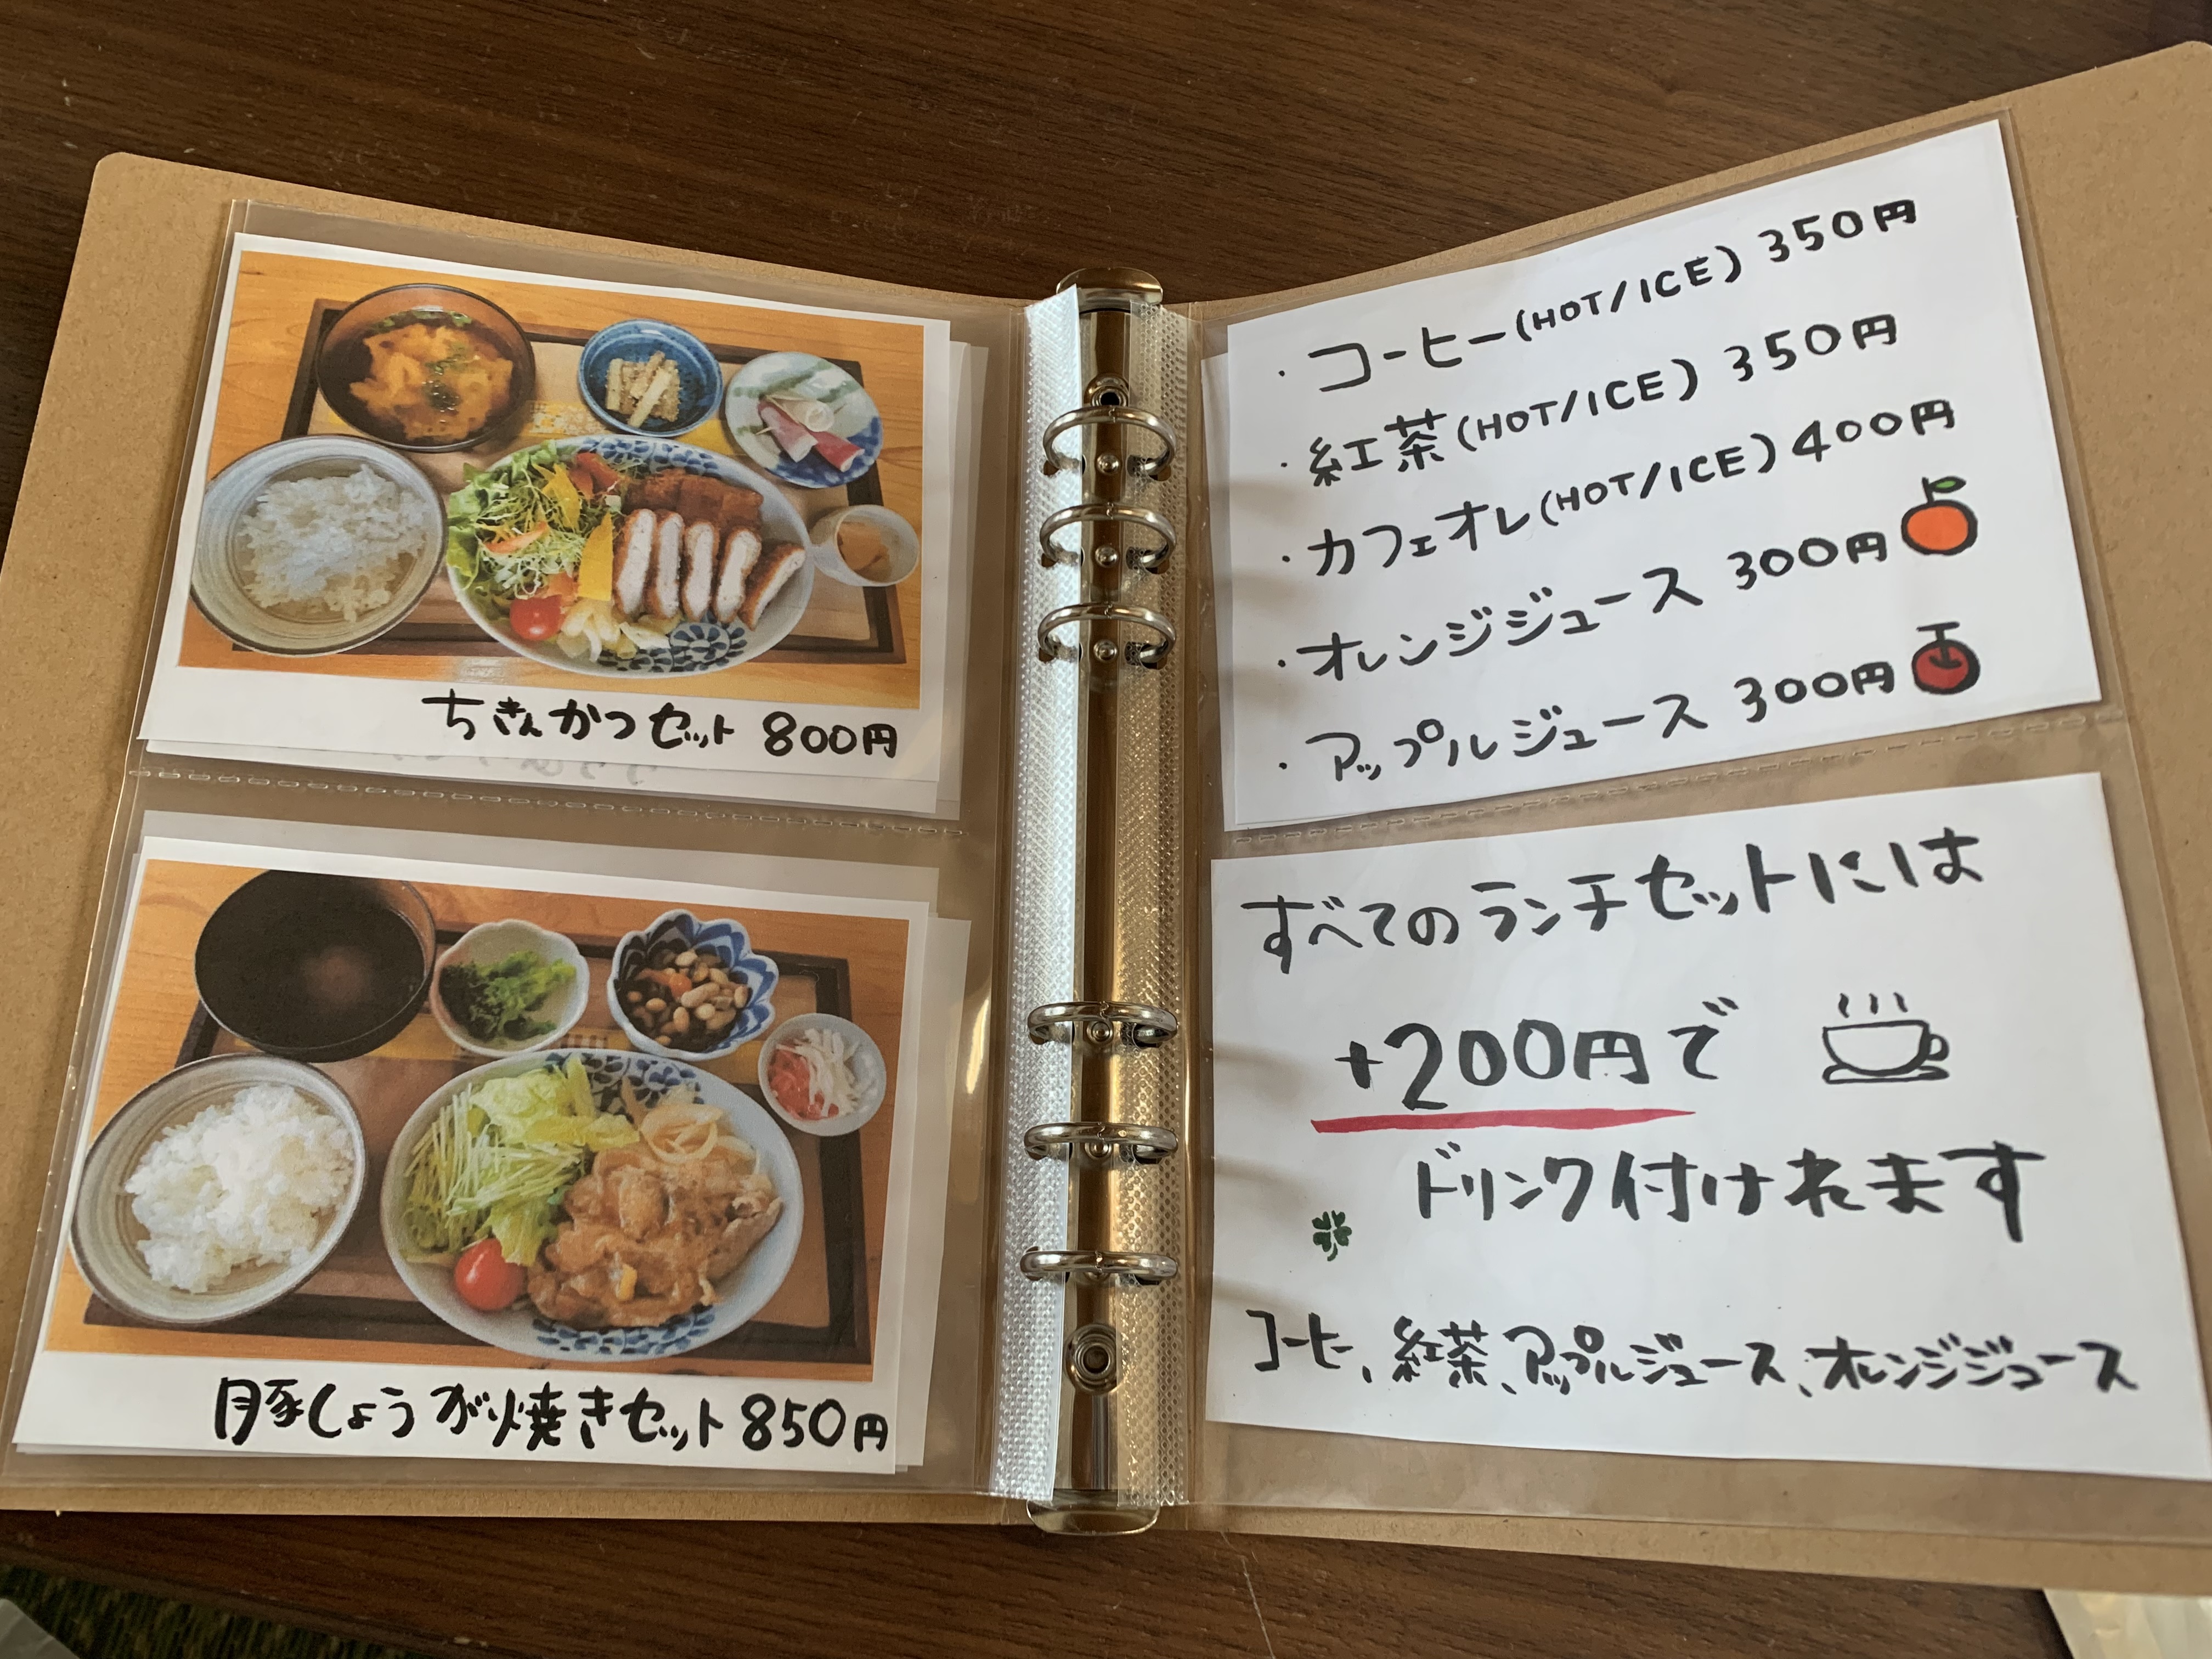 ちきんかつセット 800円
豚しょうが焼きセット 850円
・コーヒー(HOT/ICE) 350円
・紅茶(HOT/ICE) 350円
・カフェオレ(HOT/ICE) 400円
・オレンジジュース 300円
・アップルジュース 300円
すべてのランチセットには
+200円で
ドリンク付けれます
コーヒー、紅茶、アップルジュース、オレンジジュース